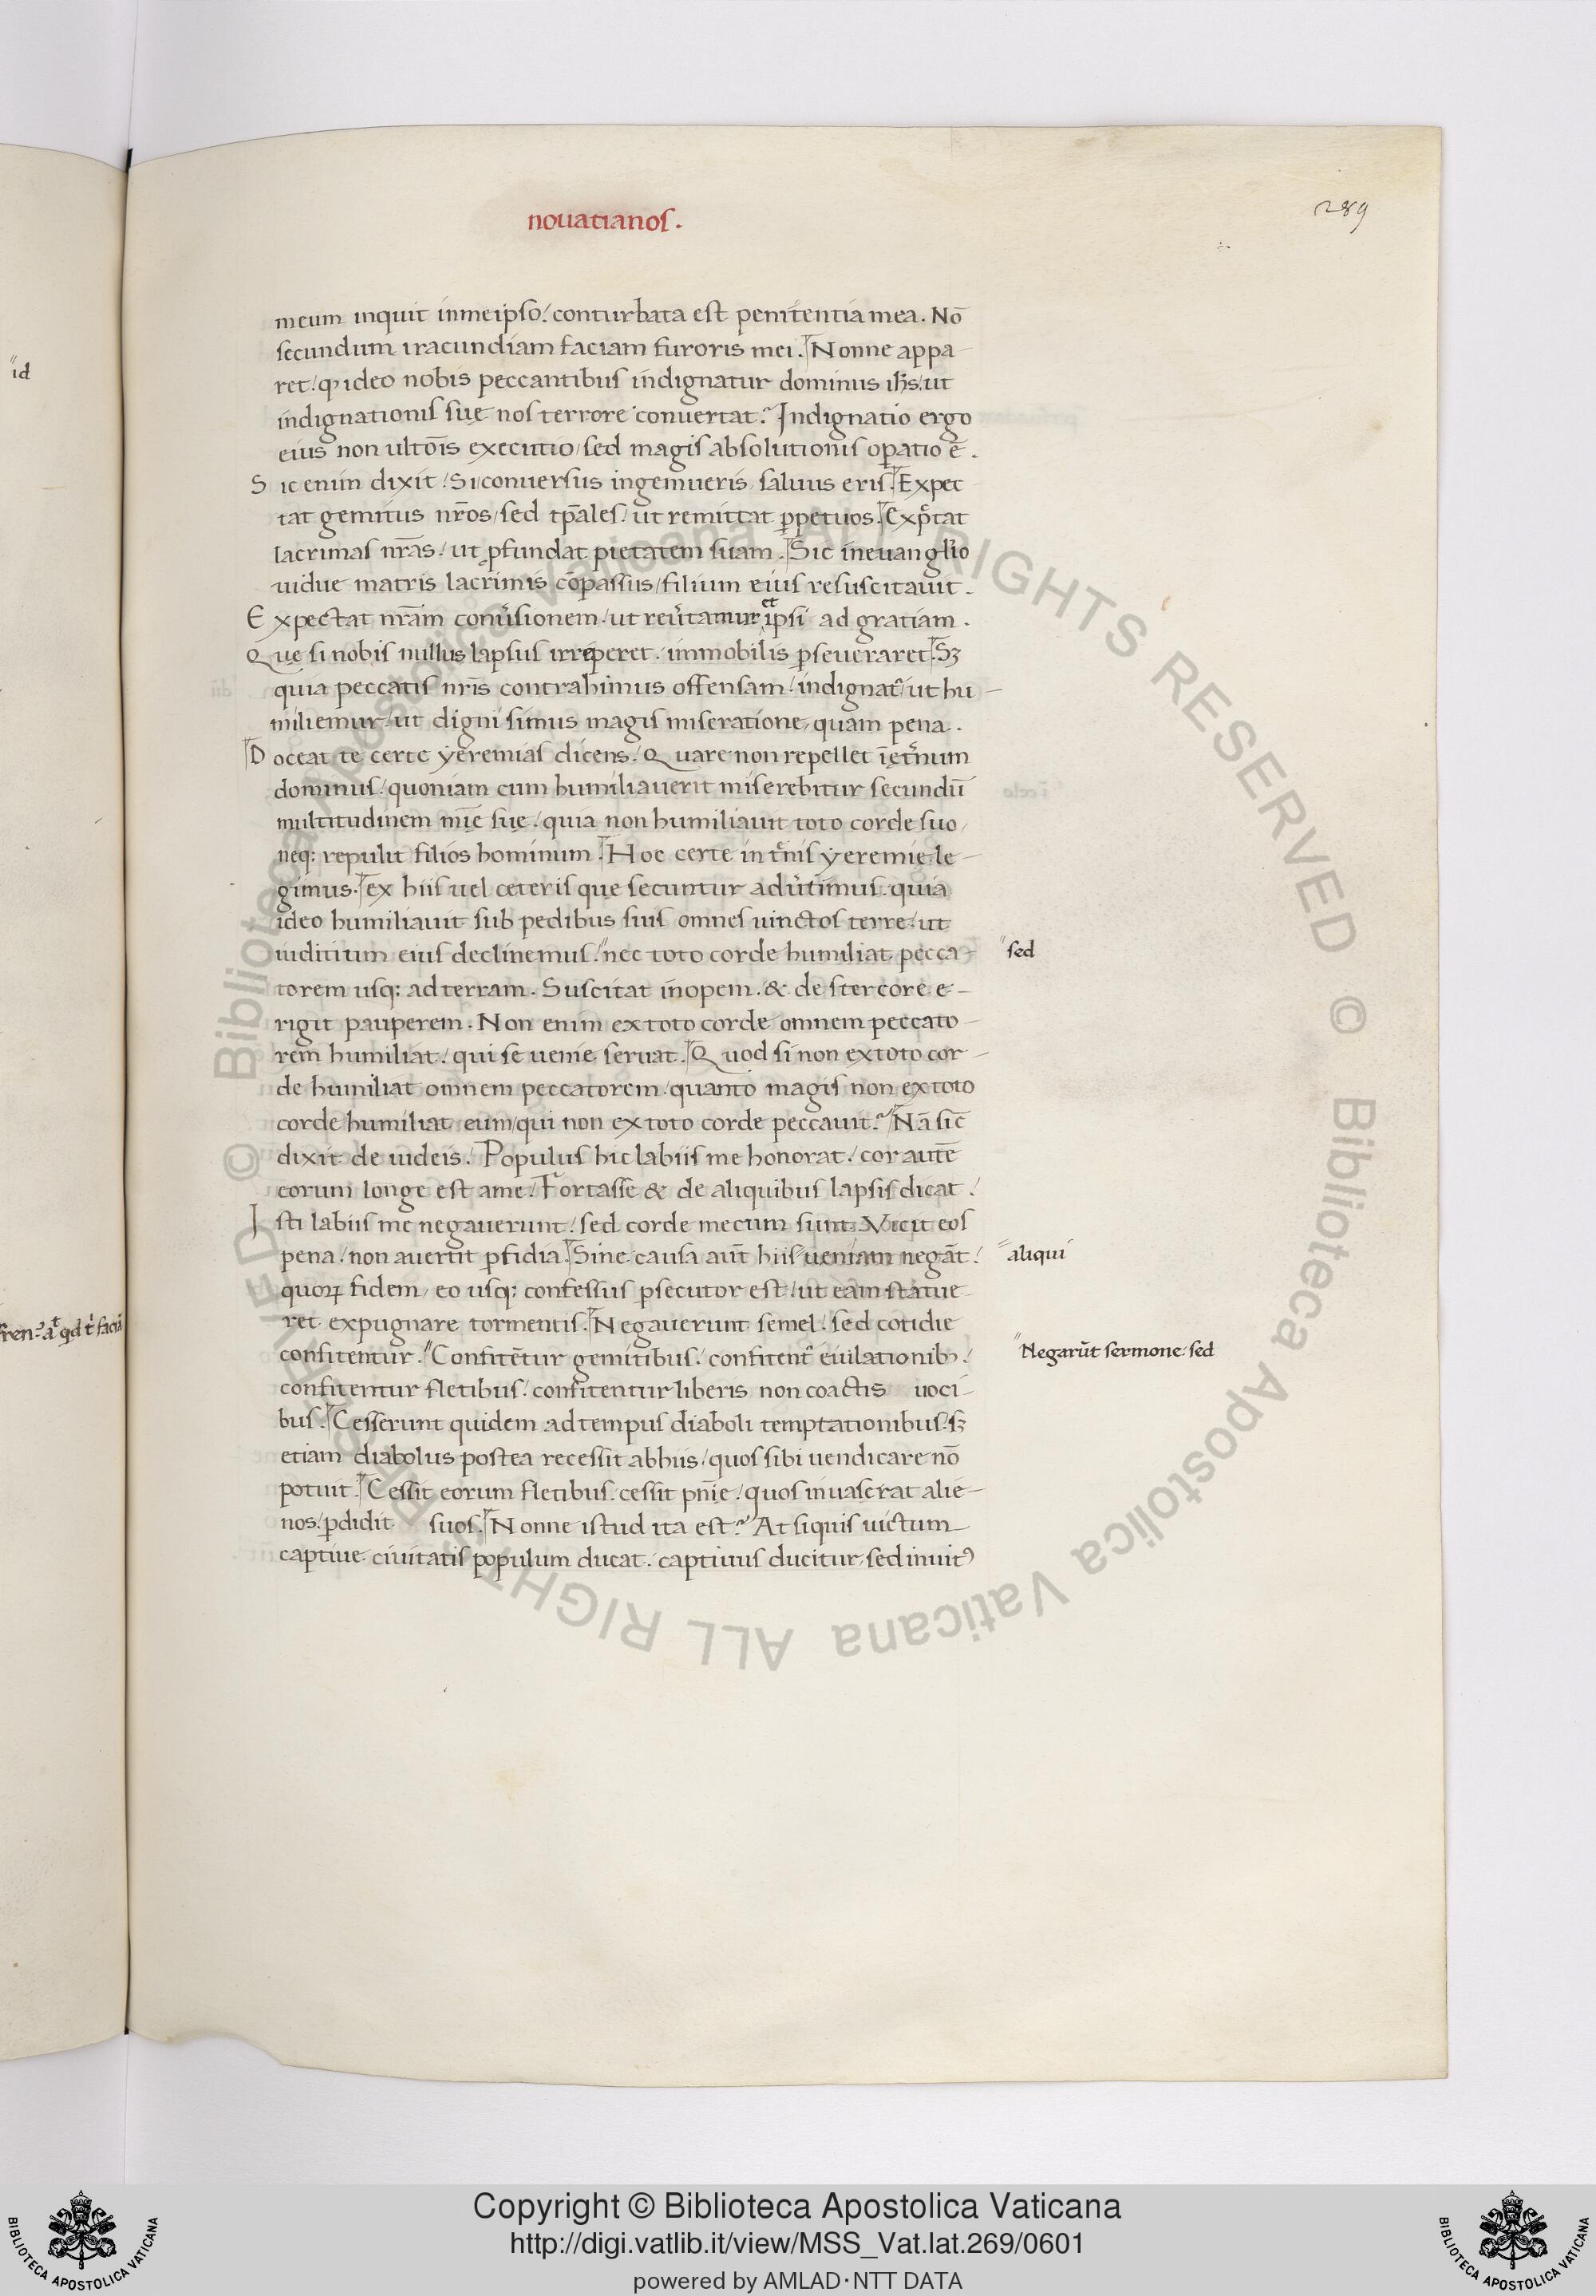 nouatianos.
289
meum inquit inmeipso / conturbata est penitentia mea. Nō
secundum iracundiam faciam furoris mei. Nonne appa-
ret / ꝙ ideo nobis peccantibus indignatur dominus ihs / ut
indignationis suę nos terrore conuertat? Indignatio ergo
eius non ultōis executio / sed magis absolutionis oꝑatio ē.
Sic enim dixit / Si conuersus ingemueris, saluus eris. Expec
tat gemitus nr̄os / sed tp̄ales / ut remittat ꝑpetuos. Exp̄tat
lacrimas nr̄as / ut ꝓfundat pietatem suam. Sic ineuanglio
uidue matris lacrimis cōpassus / filium eius resuscitauit.
Expectat nr̄am conuˀsionem / ut reuˀtamur et ipsi ad gratiam.
Quę si nobis nullus lapsus irreperet / immobilis ꝑseueraret. Sꝫ
quia peccatis nr̄is contrahimus offensam / indignatˀ / ut hu-
miliemur / ut digni simus magis miseratione, quam pena.
Doceat te certe yeremias dicens / Quare non repellet ī ętˀnum
dominus / quoniam cum humiliauerit miserebitur secundū
multitudinem mīe suę / quia non humiliauit toto corde suo /
neq: repulit filios hominum. Hoc certe in tˀnis yeremie le-
gimus. Ex hiis uel ceteris quę secuntur aduˀtimus / quia
ideo humiliauit sub pedibus suis omnes uinctos terre / ut
iuditium eius declinemus / " nec toto corde humiliat pecca-
" sed
torem usq: ad terram. Suscitat inopem. & de stercore e-
rigit pauperem. Non enim ex toto corde omnem peccato-
rem humiliat / qui se uenie seruat. Quod si non ex toto cor-
de humiliat omnem peccatorem / quanto magis non ex toto
corde humiliat eum / qui non ex toto corde peccauit? Nā sic̄
dixit de iudeis / Populus hic labiis me honorat / cor autē
eorum longe est ame / Fortasse & de aliquibus lapsis dicat /
Isti labiis me negauerunt / sed corde mecum sunt. Vicit eos
pena / non auertit ꝑfidia. Sine causa aut̄ hiis " ueniam negāt /
" aliqui
quoꝝ fidem / eo usq: confessus ꝑsecutor est / ut eam statue
ret expugnare tormentis. Negauerunt semel / sed cotidie
confitentur. " Confitētur gemitibus / confitentˀ eiulationibꝫ /
" Negarūt sermone / sed
confitentur fletibus / confitentur liberis non coactis uoci-
bus. Cesserunt quidem ad tempus diaboli temptationibus / sꝫ
etiam diabolus postea recessit abhiis / quos sibi uendicare nō
potuit. Cessit eorum fletibus / cessit pn̄ię / quos inuaserat alie-
nos / ꝑdidit suos. Nonne istud ita est? At siquis uictum
captiue ciuitatis populum ducat / captiuus ducitur / sed inuitꝰ
" id
Copyright © Biblioteca Apostolica Vaticana
http://digi.vatlib.it/view/MSS_Vat.lat.269/0601
powered by AMLAD·NTT DATA
BIBLIOTECA APOSTOLICA VATICANA
BIBLIOTECA APOSTOLICA VATICANA
© Biblioteca Apostolica Vaticana ALL RIGHTS RESERVED © Biblioteca Apostolica Vaticana ALL RIGHTS RESERVED